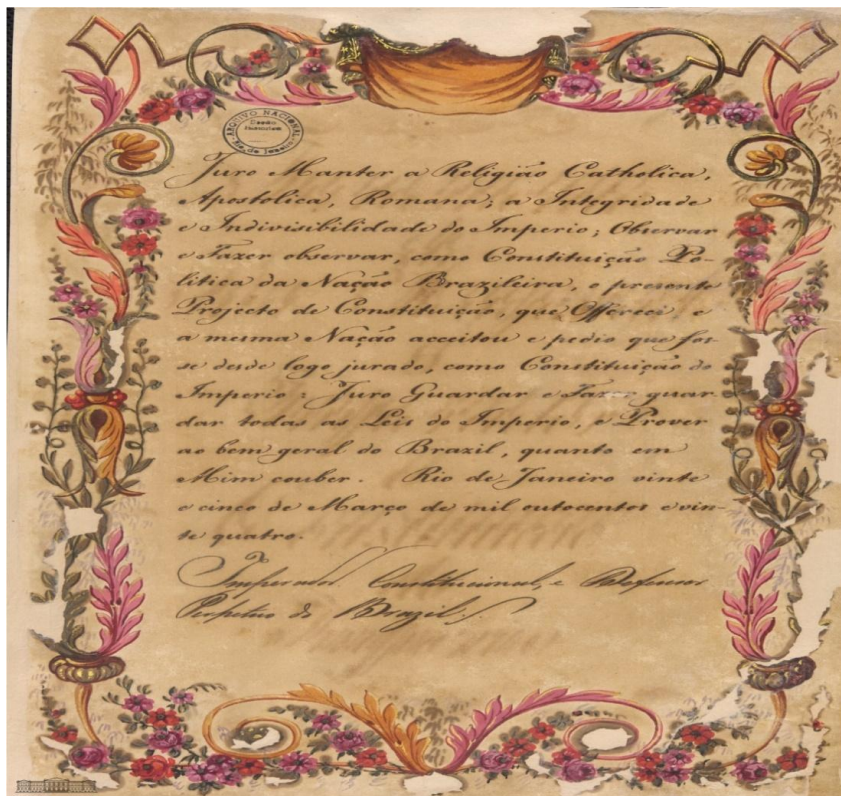 ARQUIVO NACIONAL
Rio de Janeiro
Juro Manter a Religião Catholica,
Apostolica, Romana; a Integridade
e Indivisibilidade do Imperio; Observar
e Fazer observar, como Constituição Po-
litica da Nação Brazileira, o presente
Projecto de Constituição, que Offereci, e
a mesma Nação acceitou e pedio que fos-
se desde logo jurado, como Constituição do
Imperio: Juro Guardar e Fazer guar-
dar todas as Leis do Imperio, e Prover
ao bem geral do Brazil, quanto em
Mim couber. Rio de Janeiro vinte
e cinco de Março de mil outocentos e vin-
te quatro.
Imperador Constitucional, e Defensor
Perpetuo do Brazil.